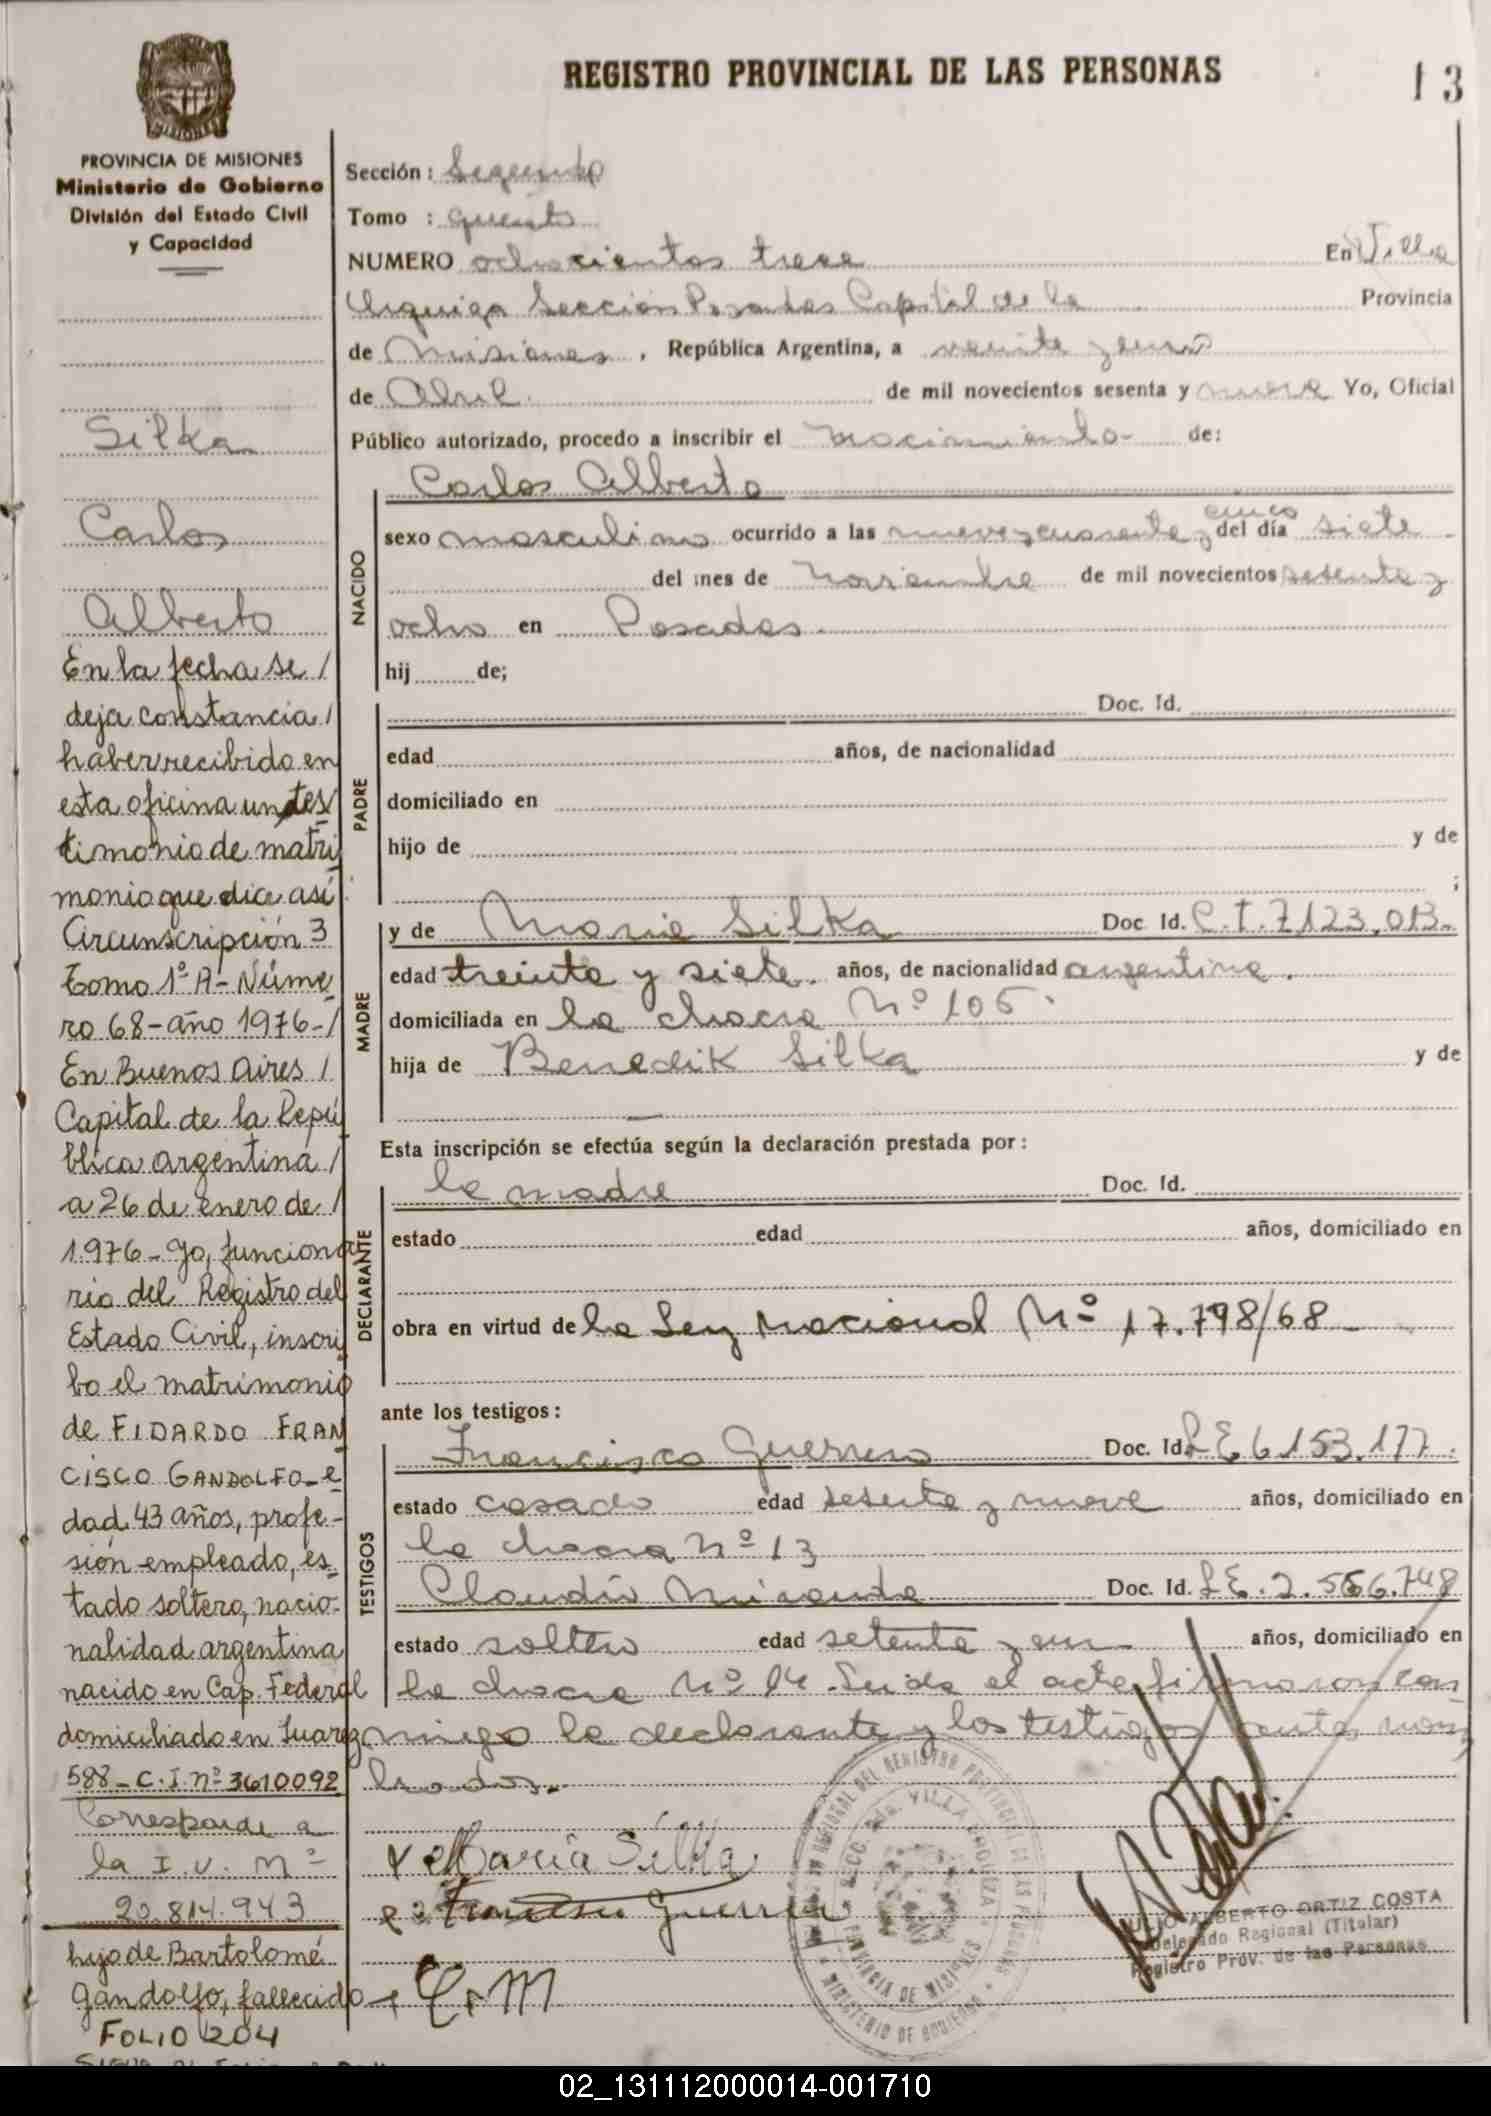 REGISTRO PROVINCIAL DE LAS PERSONAS
13
PROVINCIA DE MISIONES
Ministerio de Gobierno
División del Estado Civil
y Capacidad
Silka
Carlos
Alberto
En la fecha se /
deja constancia /
haber recibido en
esta oficina un tes
timonio de matri
monio que dice así
Circunscripción 3
Tomo 1º A - Núme
ro 68 - año 1976 - /
En Buenos Aires /
Capital de la Repú
blica argentina /
a 26 de enero de /
1976 - Yo, funciona
rio del Registro del
Estado Civil, inscri
bo el matrimonio
de FIDARDO FRAN
CISCO GANDOLFO - e
dad 43 años, profe-
sión empleado, es-
tado soltero, nacio-
nalidad argentina
nacido en Cap. Federal
domiciliado en Suarez
588 - C.I. nº 3610092
Corresponde a
la I.V. Nº
20.814.943
hijo de Bartolomé
Gandolfo, fallecido
FOLIO 204
Sección: Segunda
Tomo : quinto
NUMERO ochocientos trece En Villa
Urquiza Sección Posadas Capital de la Provincia
de Misiones, República Argentina, a veinte y uno
de Abril de mil novecientos sesenta y nueve Yo, Oficial
Público autorizado, procedo a inscribir el nacimiento - de:
Carlos Alberto
NACIDO
cinco
sexo masculino ocurrido a las nueve y cuarenta y del día siete
del mes de Noviembre de mil novecientos sesenta y
ocho en Posadas.
hij de;
PADRE
Doc. Id.
edad años, de nacionalidad
domiciliado en
hijo de y de
;
MADRE
y de Maria Silka Doc. Id. C.I. 7.123.013.
edad treinta y siete. años, de nacionalidad argentina.
domiciliada en la chacra Nº 106.
hija de Benedik Silka y de
Esta inscripción se efectúa según la declaración prestada por:
DECLARANTE
la madre Doc. Id.
estado edad años, domiciliado en
obra en virtud de la Ley nacional Nº 17.798/68
ante los testigos:
TESTIGOS
Francisco Guerrero Doc. Id. L.E. 6.153.177.
estado casado edad sesenta y nueve años, domiciliado en
la chacra Nº 13
Claudio Miranda Doc. Id. L.E. 2.566.748
estado soltero edad setenta y un años, domiciliado en
la chacra Nº 14. Leida el acta firmaron con
migo la declarante y los testigos antes nom
brados.
x Maria Silka
Francisco Guerrero
C. M
JULIO ALBERTO ORTIZ COSTA
Delegado Regional (Titular)
Registro Prov. de las Personas
02_131112000014-001710